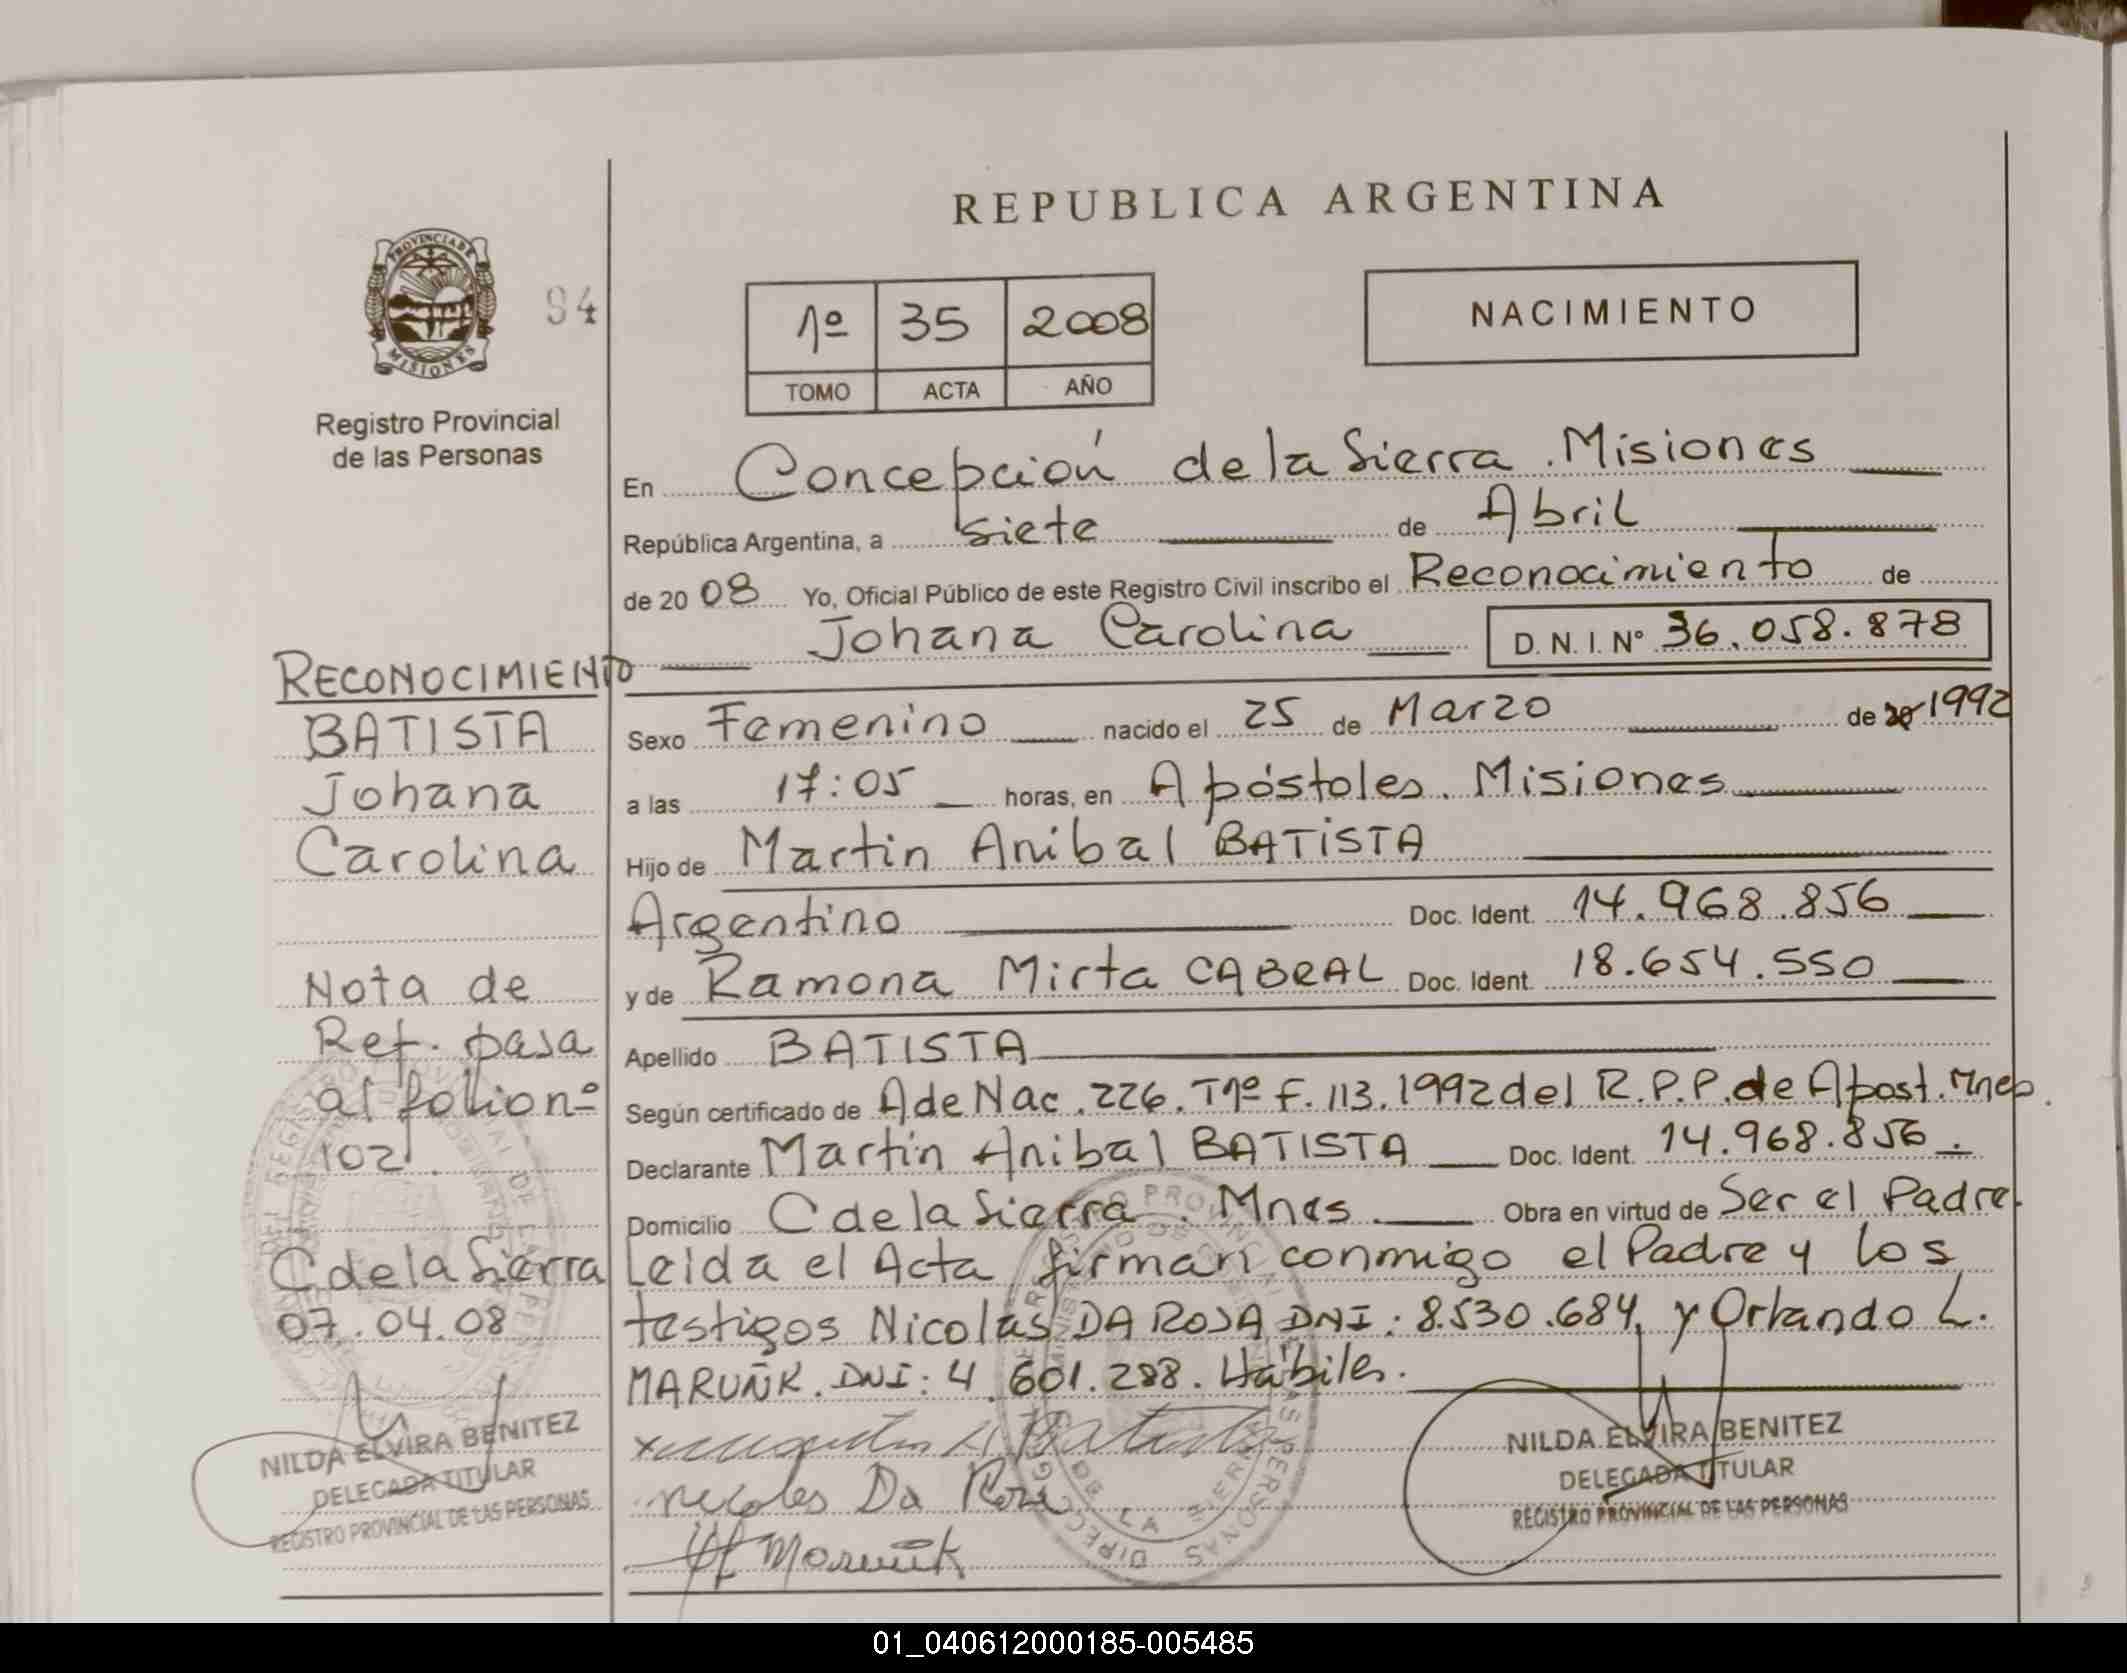 REPUBLICA ARGENTINA
PROVINCIA DE
MISIONES
94
Registro Provincial
de las Personas
1º 35 2008
TOMO ACTA AÑO
NACIMIENTO
En Concepción de la Sierra. Misiones
República Argentina, a siete de Abril
de 2008 Yo, Oficial Público de este Registro Civil inscribo el Reconocimiento de
Johana Carolina D. N. I. Nº 36.058.878
Sexo Femenino nacido el 25 de Marzo de 20 1992
a las 17:05 horas, en Apóstoles. Misiones
Hijo de Martin Anibal BATISTA
Argentino Doc. Ident. 14.968.856
y de Ramona Mirta CABRAL Doc. Ident. 18.654.550
Apellido BATISTA
Según certificado de A de Nac. 226. T1º F. 113. 1992 del R.P.P. de Apost. Mnes.
Declarante Martin Anibal BATISTA Doc. Ident. 14.968.856.
Domicilio C de la Sierra. Mnes. Obra en virtud de Ser el Padre.
Leida el Acta firman conmigo el Padre y los
testigos Nicolas DA ROSA DNI: 8.530.684, y Orlando L.
MARUÑK. DNI: 4.601.288. Hábiles.
Batista
nicoles Da Rosa
Maruñk
NILDA ELVIRA BENITEZ
DELEGADA TITULAR
REGISTRO PROVINCIAL DE LAS PERSONAS
RECONOCIMIENTO
BATISTA
Johana
Carolina
Nota de
Ref. pasa
al folio nº
102.
C de la Sierra
07.04.08
NILDA ELVIRA BENITEZ
DELEGADA TITULAR
REGISTRO PROVINCIAL DE LAS PERSONAS
01_040612000185-005485